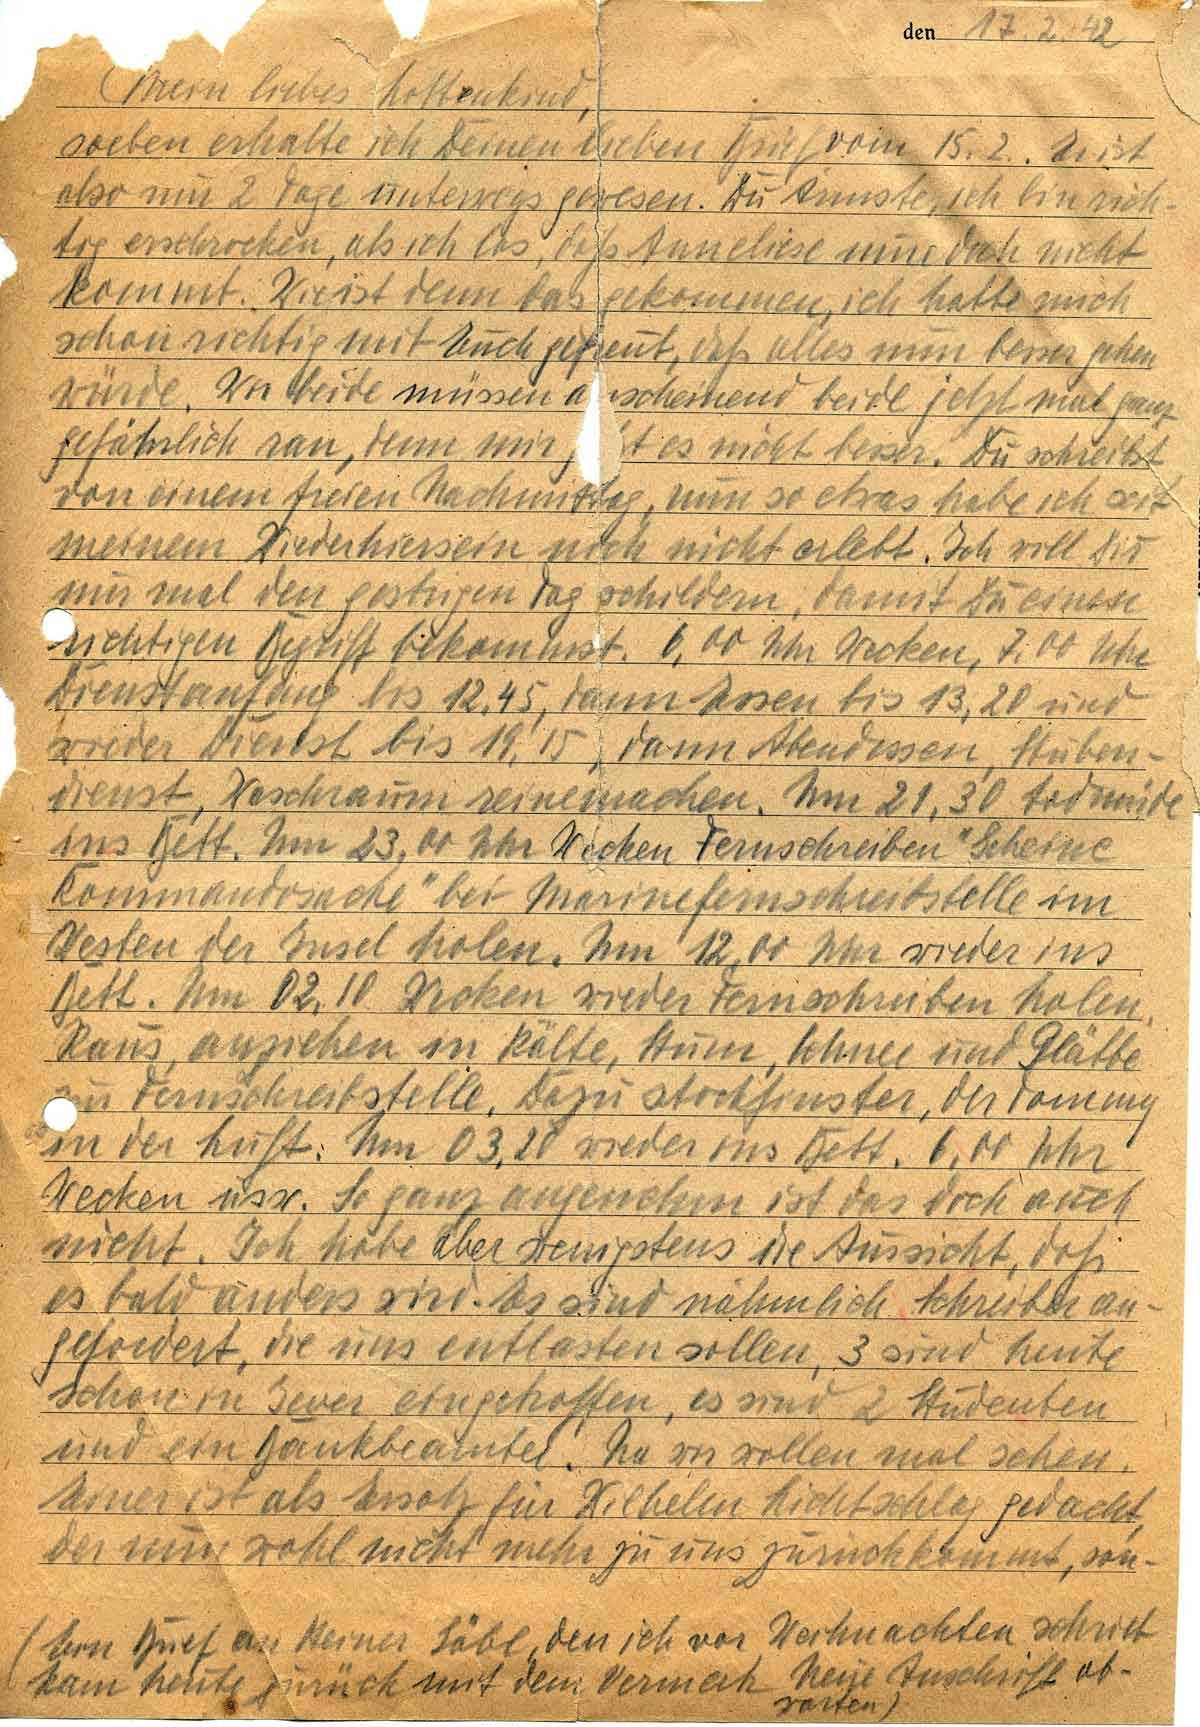 den 17.2.42
Mein liebes Lottenkind,
soeben erhalte ich Deinen lieben Brief vom 15.2. Er ist
also nur 2 Tage unterwegs gewesen. Du Ärmste, ich bin rich-
tig erschrocken, als ich las, daß Anneliese nun doch nicht
kommt. Wie ist denn das gekommen, ich hatte mich
schon richtig mit Euch gefreut, daß alles nun besser gehen
würde. Wir beide müssen anscheinend beide jetzt mal ganz
gefährlich ran, denn mir g t es nicht besser. Du schreibst
von einem freien Nachmittag, nun so etwas habe ich seit
meinem Wiederhiersein noch nicht erlebt. Ich will Dir
nur mal den gestrigen Tag schildern, damit Du einen
richtigen Begriff bekommst. 6,00 Uhr Wecken, 7.00 Uhr
Dienstanfang bis 12,45, dann Essen bis 13,20 und
wieder Dienst bis 19,15, dann Abendessen, Stuben-
dienst, Waschraum reinemachen. Um 21,30 todmüde
ins Bett. Um 23,00 Uhr Wecken Fernschreiben "Geheime
Kommandosache" bei Marinefernschreibstelle im
Westen der Insel holen. Um 12,00 Uhr wieder ins
Bett. Um 02,10 Wecken wieder Fernschreiben holen.
Raus, anziehen in Kälte, Sturm, Schnee und Glätte
zu Fernschreibstelle. Dazu stockfinster, der Tommy
in der Luft. Um 03,20 wieder ins Bett. 6,00 Uhr
Wecken usw. So ganz angenehm ist das doch auch
nicht. Ich habe aber wenigstens die Aussicht, daß
es bald anders wird. Es sind nähmlich Schreiber an-
gefordert, die uns entlasten sollen, 3 sind heute
schon in Jever eingetroffen, es sind 2 Studenten
und ein Bankbeamter. Na wir wollen mal sehen.
Einer ist als Ersatz für Wilhelm Lichtschlag gedacht,
der nun wohl nicht mehr zu uns zurückkommt, son-
(Ein Brief an Heiner den ich vor Weihnachten schrieb
kam heute zurück mit dem Vermerk Neue Anschrift ab-
warten)